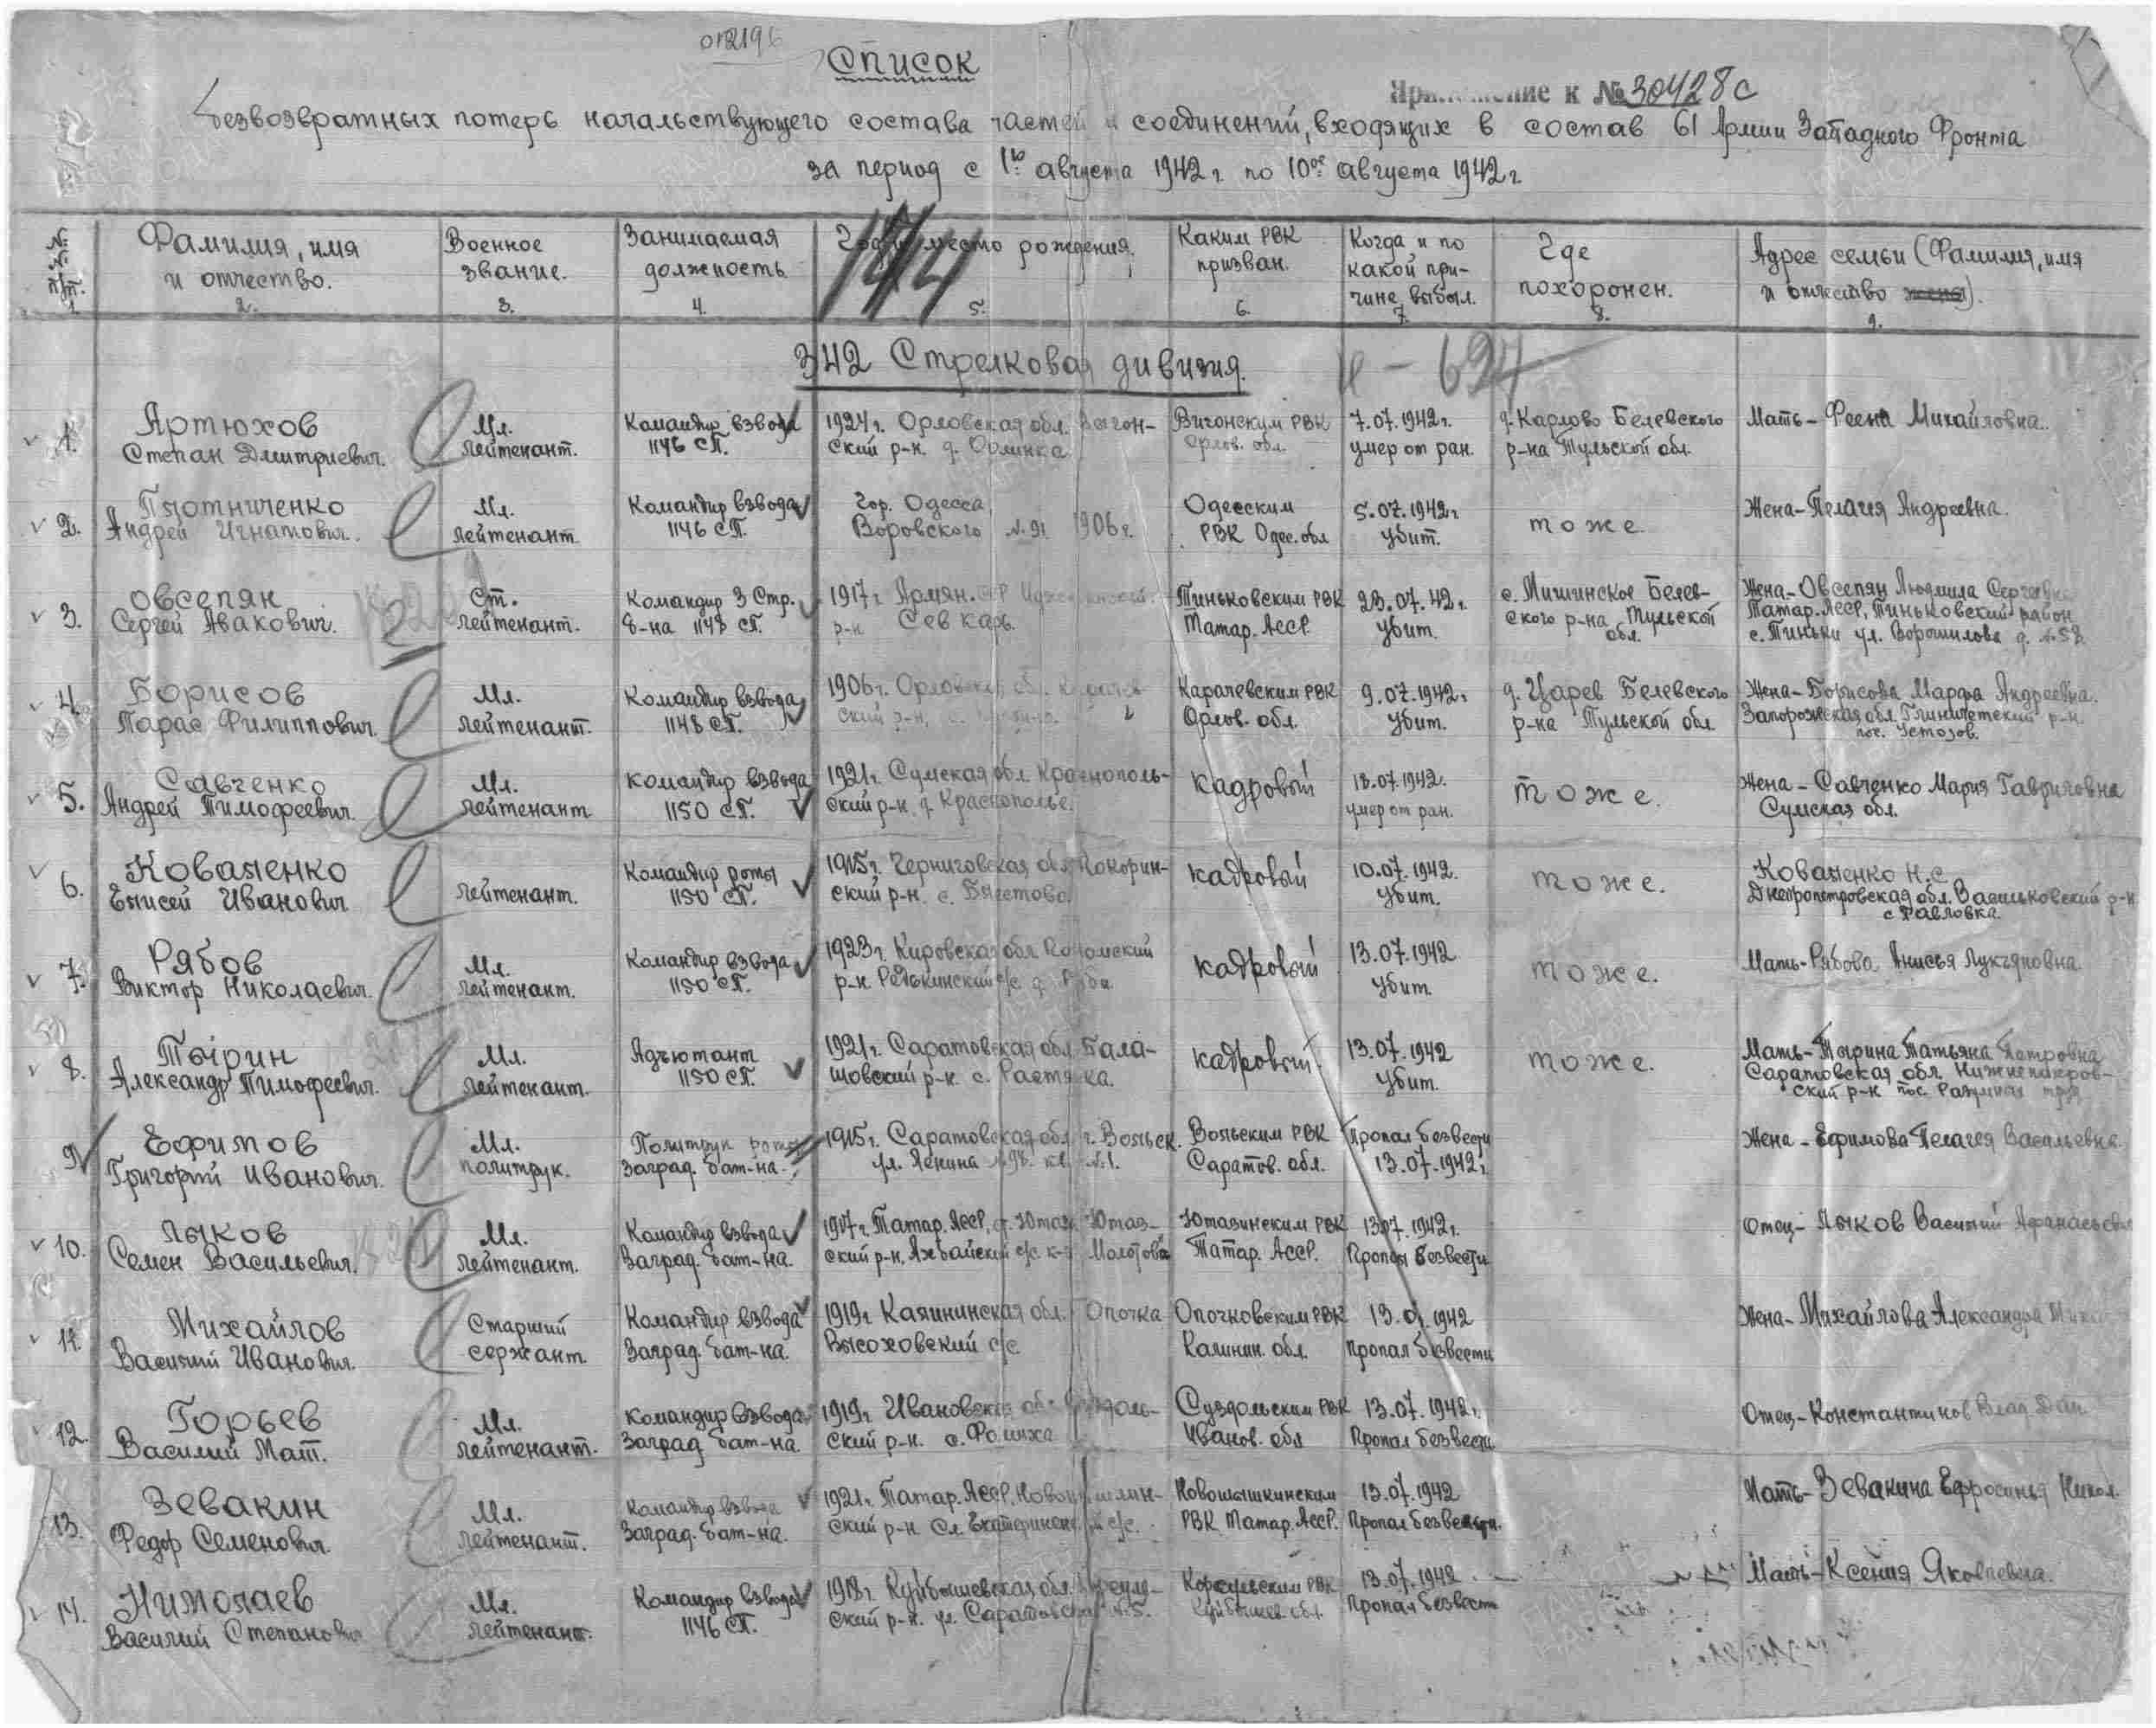 012196
Список
Приложение к № 30428с
безвозвратных потерь начальствующего состава частей и соединений, входящих в состав 61 Армии Западного Фронта
за период с 1го августа 1942 г. по 10ое августа 1942 г.
№ № п/п. 1.
Фамилия, имя и отчество. 2.
Военное звание. 3.
Занимаемая должность 4.
Год и место рождения, 5.
Каким РВК призван. 6.
Когда и по какой причине выбыл. 7.
Где похоронен. 8.
Адрес семьи (Фамилия, имя и отчество жены). 9.
144
342 Стрелковая дивизия.
И - 694
1. Артюхов
Степан Дмитриевич.
Мл.
лейтенант.
Командир взвода
1146 СП.
1924 г. Орловская обл.
ский р-н. д.
РВК
Орлов. обл.
7.07.1942 г.
умер от ран.
д. Карлово Белевского
р-на Тульской обл.
Мать - Феена Михайловна.
2. Плотниченко
Андрей Игнатович.
Мл.
лейтенант.
Командир взвода
1146 СП.
Гор. Одесса,
Воровского № 91 1906 г.
Одесским
РВК Одес. обл
5.07.1942 г
убит.
тоже.
Жена - Пелагея Андреевна.
3. Овсепян
Сергей Авакович.
Ст.
лейтенант.
Командир 3 Стр.
б-на 1148 СП.
1917 г. Армян.
р-н Сев кар.
Тиньковским РВК
Татар. Асср.
23.07.42 г.
убит.
с. Мишинское Белев-
ского р-на Тульской
обл.
Жена - Овсепян Людмила
Татар. Асср, Тиньковский район
с. Тиньки ул. Ворошилова д. № 58
4. Борисов
Тарас Филиппович.
Мл.
лейтенант.
Командир взвода
1148 СП.
1906 г.
ский р-н, с.
Карачевским РВК
Орлов. обл.
9.07.1942 г
убит.
д. Царев Белевского
р-на Тульской обл.
Жена - Борисова Марфа Андреевна.
Запорожская обл. р-н.
пос.
5. Савченко
Андрей Тимофеевич.
Мл.
лейтенант
Командир взвода
1150 СП.
1921 г. Сумская обл. Краснополь-
ский р-н. д. Краснополье.
кадровый
18.07.1942.
умер от ран.
тоже.
Жена - Савченко Мария Гавриловна
Сумская обл.
6. Коваленко
Елисей Иванович
лейтенант.
Командир роты
1150 СП.
1915 г. Черниговская обл.
ский р-н. с.
кадровый
10.07.1942.
убит.
тоже.
Коваленко Н.С.
Днепропетровская обл. Васильковский р-н
с Павловка.
7. Рябов
Виктор Николаевич.
Мл.
лейтенант.
Командир взвода
1150 СП.
1923 г. Кировская обл.
р-н Редькинский с/с д.
кадровый
13.07.1942
убит.
тоже.
Мать - Рябова Анисья Лукьяновна
8. Тырин
Александр Тимофеевич.
Мл.
лейтенант.
Адъютант
1150 СП.
1921 г. Саратовская обл. Бала-
шовский р-н. с.
кадровый.
13.07.1942
убит.
тоже.
Мать - Тырина Татьяна Петровна
Саратовская обл.
ский р-н пос.
9. Ефимов
Григорий Иванович.
Мл.
политрук.
Политрук роты
Заград. бат-на.
1915 г. Саратовская обл. г. Вольск.
ул. Ленина № 98. кв. № 1.
Вольским РВК
Саратов. обл.
Пропал безвести
13.07.1942 г.
Жена - Ефимова Пелагея Васильевна.
10. Лыков
Семен Васильевич.
Мл.
лейтенант.
Командир взвода
Заград. бат-на.
1917 г. Татар. Асср, Ютаз-
ский р-н, с/с Молотова
Ютазинским РВК
Татар. Асср.
13.07.1942 г.
Пропал безвести
Отец - Лыков Василий
11. Михайлов
Василий Иванович.
Старший
сержант.
Командир взвода
Заград. бат-на.
1919 г Калининская обл. Опочка
Высоковский с/с
Опочковским РВК
Калинин. обл.
13.07.1942
Пропал безвести
Жена - Михайлова Александра
12. Горьев
Василий Мат.
Мл.
лейтенант.
Командир взвода
Заград бат-на.
1919 г. Ивановская обл. Суздоль-
ский р-н. с.
Суздольским РВК
Иванов. обл
13.07.1942 г.
Пропал безвести
Отец - Константинов
13. Зевакин
Федор Семенович.
Мл.
лейтенант.
Командир взвода
Заград. бат-на.
1921 г. Татар. Асср.
ский р-н с/с.
РВК Татар. Асср.
13.07.1942
Пропал безвести.
Мать - Зевакина Ефросинья Никол.
14. Николаев
Василий Степанович
Мл.
лейтенант.
Командир взвода
1146 СП.
1918 г. Куйбышевская обл.
ский р-н. ул. Саратовская № 5.
РВК
Куйбышев. обл.
13.07.1942
Пропал безвести
Мать - Ксения Яковлевна.